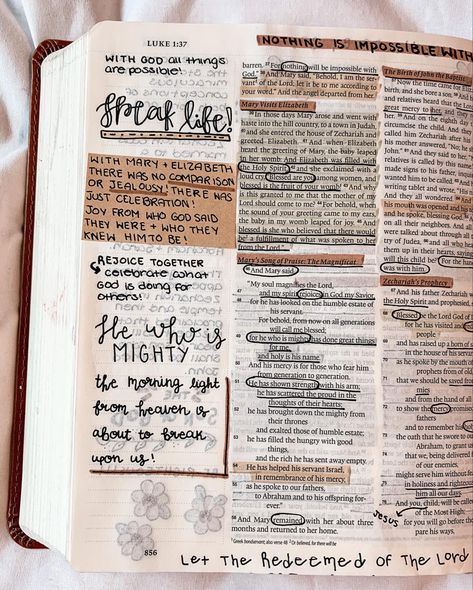 LUKE 1:37
NOTHING IS IMPOSSIBLE WITH
WITH GOD all things
are possible!
Speak life!
WITH MARY + ELIZABETH
THERE WAS NO COMPARISON
OR JEALOUSY! THERE WAS
JUST CELEBRATION!
JOY FROM WHO GOD SAID
THEY WERE + WHO THEY
KNEW HIM TO BE!
REJOICE TOGETHER
celebrate what
GOD is doing for
others!
He who is
MIGHTY
the morning light
from heaven is
about to break
upon us!
856
barren. 37 For nothing will be impossible with
God." 38 And Mary said, "Behold, I am the ser-
vant of the Lord; let it be to me according to
your word." And the angel departed from her.
Mary Visits Elizabeth
39 In those days Mary arose and went with
haste into the hill country, to a town in Judah,
40 and she entered the house of Zechariah and
greeted Elizabeth. 41 And when Elizabeth
heard the greeting of Mary, the baby leaped
in her womb. And Elizabeth was filled with
the Holy Spirit, 42 and she exclaimed with a
loud cry, "Blessed are you among women, and
blessed is the fruit of your womb! 43 And why
is this granted to me that the mother of my
Lord should come to me? 44 For behold, when
the sound of your greeting came to my ears,
the baby in my womb leaped for joy. 45 And
blessed is she who believed that there would
be a fulfillment of what was spoken to her
from the Lord."
Mary's Song of Praise: The Magnificat
46 And Mary said,
"My soul magnifies the Lord,
47 and my spirit rejoices in God my Savior,
48 for he has looked on the humble estate of
his servant.
For behold, from now on all generations
will call me blessed;
49 for he who is mighty has done great things
for me,
and holy is his name.
50 And his mercy is for those who fear him
from generation to generation.
51 He has shown strength with his arm;
he has scattered the proud in the
thoughts of their hearts;
52 he has brought down the mighty from
their thrones
and exalted those of humble estate;
53 he has filled the hungry with good
things,
and the rich he has sent away empty.
54 He has helped his servant Israel,
in remembrance of his mercy,
55 as he spoke to our fathers,
to Abraham and to his offspring for-
ever."
56 And Mary remained with her about three
months and returned to her home.
The Birth of John the Baptist
Now the time came for
birth, and she bore a son.
and relatives heard that the Lord
great mercy to her, and
And on the eighth day
circumcise the child. And
called him Zechariah after
his mother answered, "No;
And they said to
relatives is called by
made signs to his father,
wanted him to be called.
writing tablet and wrote,
And they all wondered.
mouth was opened and his
and he spoke, blessing God.
on all their neighbors. And
were talked about through all
try of Judea, and all who
up in their hearts, saying,
will this child be?" For the
was with him.
Zechariah's Prophecy
And his father Zechariah
the Holy Spirit and prophesied,
Blessed be the Lord God
for he has visited and
people
and has raised up a horn of
in the house of his
as he spoke by the mouth
prophets from of old,
that we should be saved from
mies
and from the hand of all
to show the mercy promised
and to remember his
the oath that he swore to
Abraham, to grant us
that we, being delivered
of our enemies,
might serve him without
in holiness and righteousness
him all our days.
And you, child, will be called
of the Most High;
Jesus
for you will go before the
pare his ways,
1 Greek bondservant; also verse 48 2 Or believed, for there will be
Let The Redeemed of The Lord